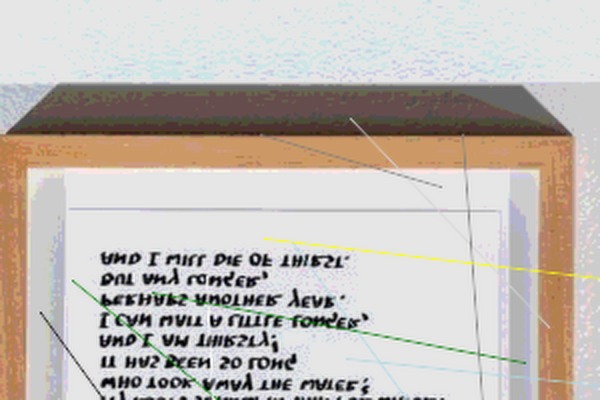 WHO TOOK AWAY THE WATER?
IT HAS BEEN SO LONG
AND I AM THIRSTY;
I CAN WAIT A LITTLE LONGER,
PERHAPS ANOTHER YEAR.
BUT ANY LONGER,
AND I WILL DIE OF THIRST.